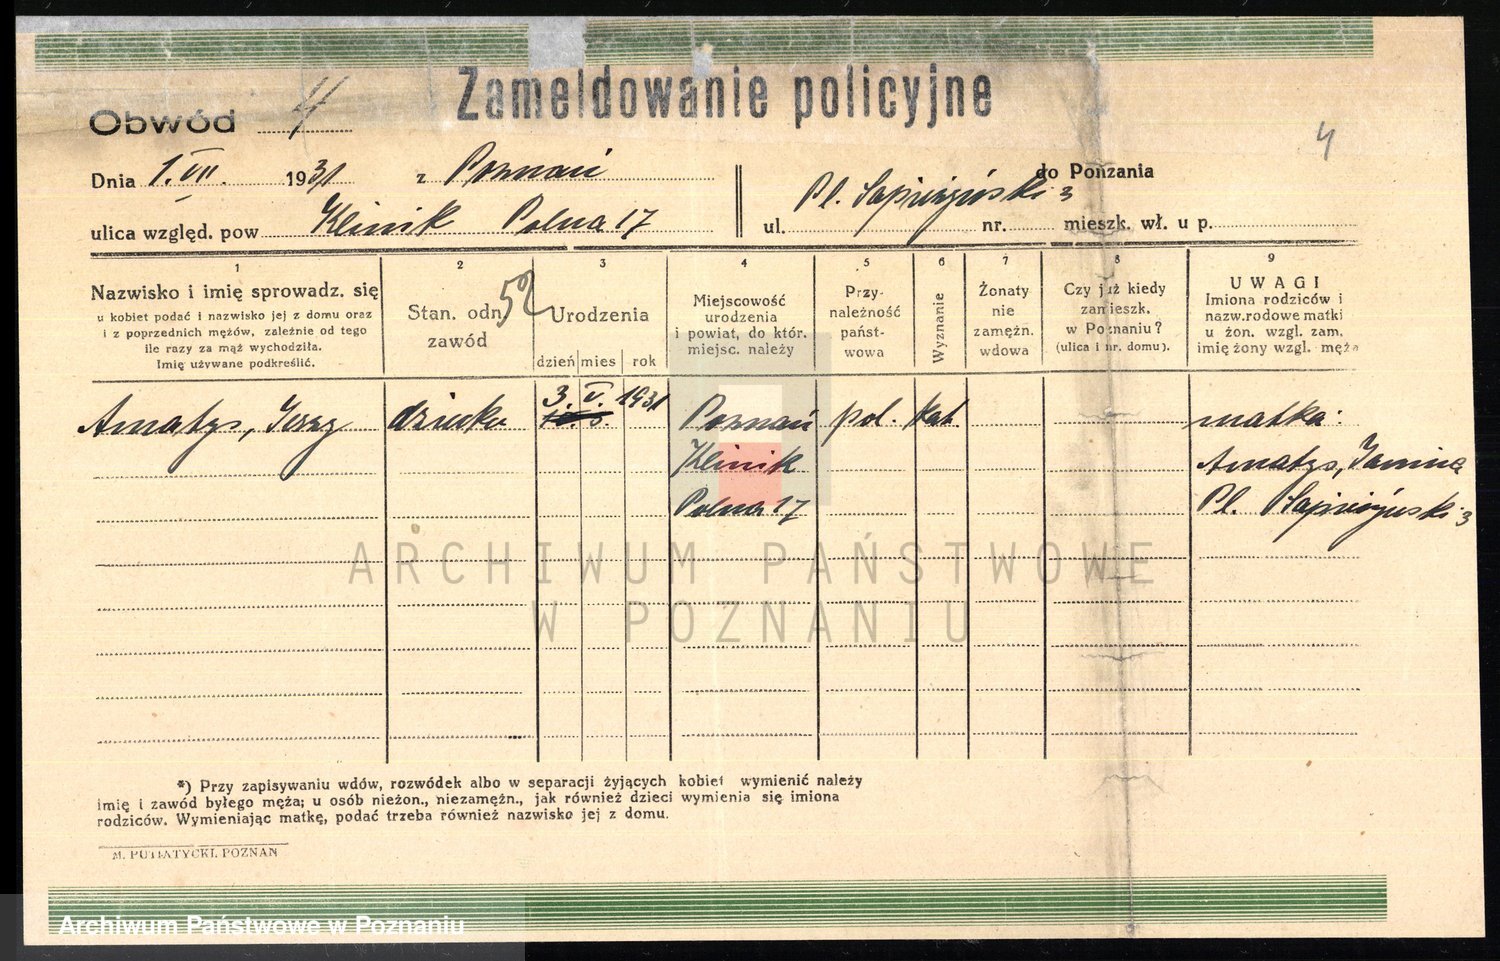 Zameldowanie policyjne
Obwód 4
4
Dnia 1. VII. 1931 z Poznań do Poznania
ulica względ. pow Klinik Polna 17 ul. Pl. Sapieżyński 3 nr. mieszk. wł. u p.
1
Nazwisko i imię sprowadz. się
u kobiet podać i nazwisko jej z domu oraz
i z poprzednich mężów, zależnie od tego
ile razy za mąż wychodziła.
Imię używane podkreślić.
2
Stan. odn.
zawód
3
Urodzenia
dzień mies rok
4
Miejscowość
urodzenia
i powiat, do któr.
miejsc. należy
5
Przy-
należność
państ-
wowa
6
Wyznanie
7
Żonaty
nie
zamężn.
wdowa
8
Czy już kiedy
zamieszk.
w Poznaniu?
(ulica i nr. domu).
9
UWAGI
Imiona rodziców i
nazw.rodowe matki
u żon. wzgl. zam.
imię żony wzgl. męża
Amatys, Jerzy dziecko 3. V. 1931 Poznań pol. kat. matka:
Klinik Amatys, Janina
Polna 17 Pl. Sapieżyński 3
ARCHIWUM PAŃSTWOWE
W POZNANIU
*) Przy zapisywaniu wdów, rozwódek albo w separacji żyjących kobiet wymienić należy
imię i zawód byłego męża; u osób nieżon., niezamężn., jak również dzieci wymienia się imiona
rodziców. Wymieniając matkę, podać trzeba również nazwisko jej z domu.
M. PUTIATYCKI. POZNAŃ
Archiwum Państwowe w Poznaniu